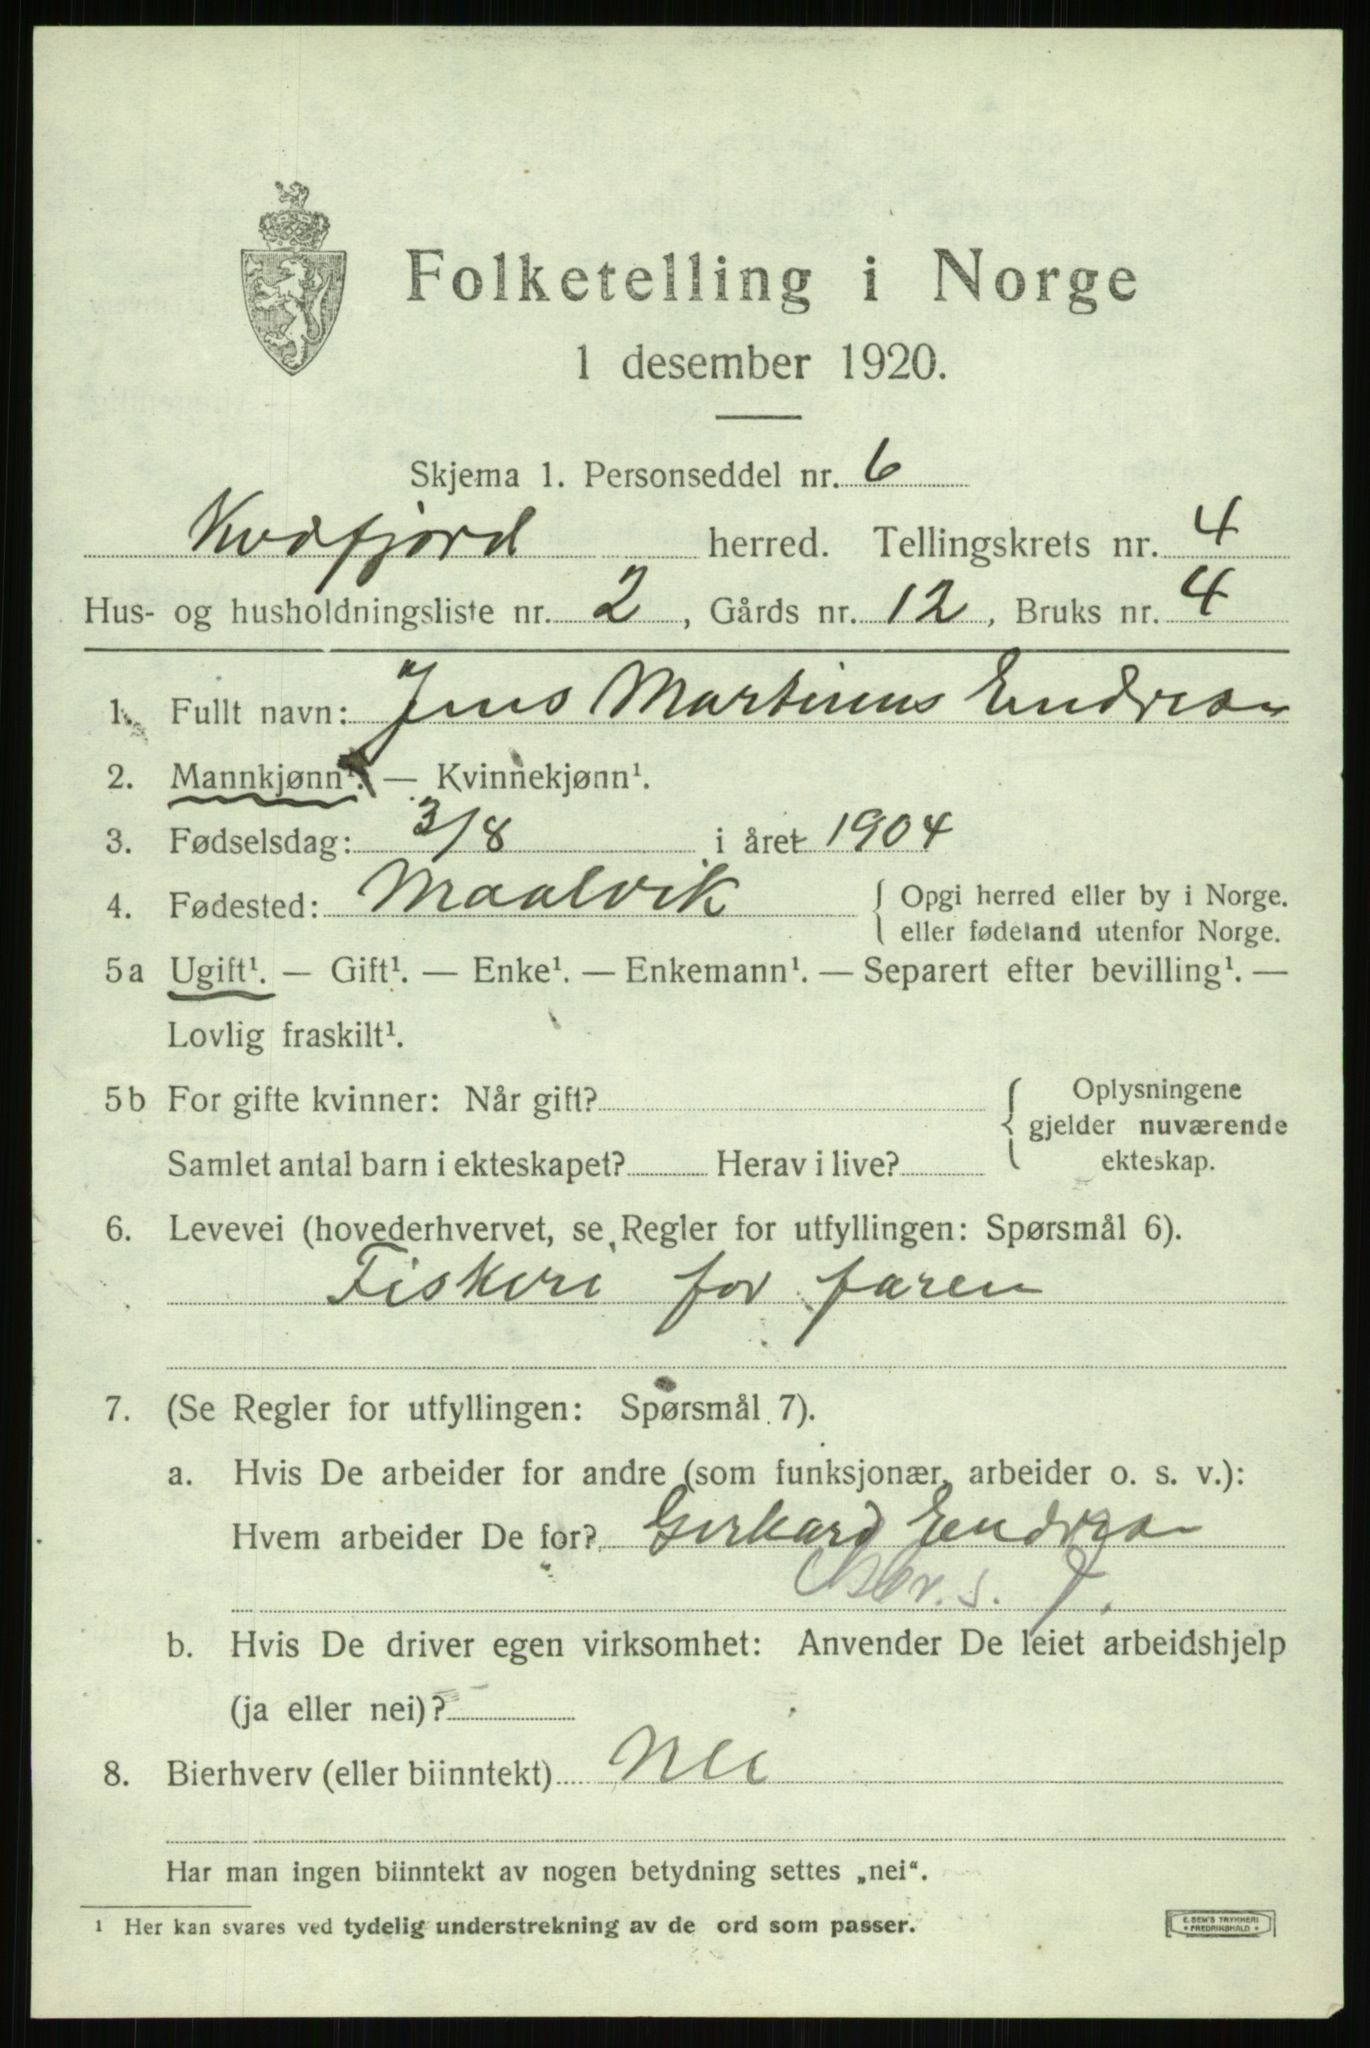 Folketelling i Norge
1 desember 1920.
Skjema 1. Personseddel nr. 6
Kvæfjord herred. Tellingskrets nr. 4
Hus- og husholdningsliste nr. 2, Gårds nr. 12, Bruks nr. 4
1. Fullt navn: Jens Martinus Endresen
2. Mannkjønn¹. — Kvinnekjønn¹.
3. Fødselsdag: 3/8 i året 1904
4. Fødested: Maalvik { Opgi herred eller by i Norge.
eller fødeland utenfor Norge.
5a Ugift¹. — Gift¹. — Enke¹. — Enkemann¹. — Separert efter bevilling¹. —
Lovlig fraskilt¹.
5b For gifte kvinner: Når gift?
Samlet antal barn i ekteskapet? Herav i live?
Oplysningene
gjelder nuværende
ekteskap.
6. Levevei (hovederhvervet, se Regler for utfyllingen: Spørsmål 6).
Fiskeri for faren
7. (Se Regler for utfyllingen: Spørsmål 7).
a. Hvis De arbeider for andre (som funksjonær, arbeider o. s. v.):
Hvem arbeider De for? Gerhard Endresen
s. f.
b. Hvis De driver egen virksomhet: Anvender De leiet arbeidshjelp
(ja eller nei)?
8. Bierhverv (eller biinntekt) Nei
Har man ingen biinntekt av nogen betydning settes „nei“.
¹ Her kan svares ved tydelig understrekning av de ord som passer.
E. SEM'S TRYKKERI
FREDRIKSHALD